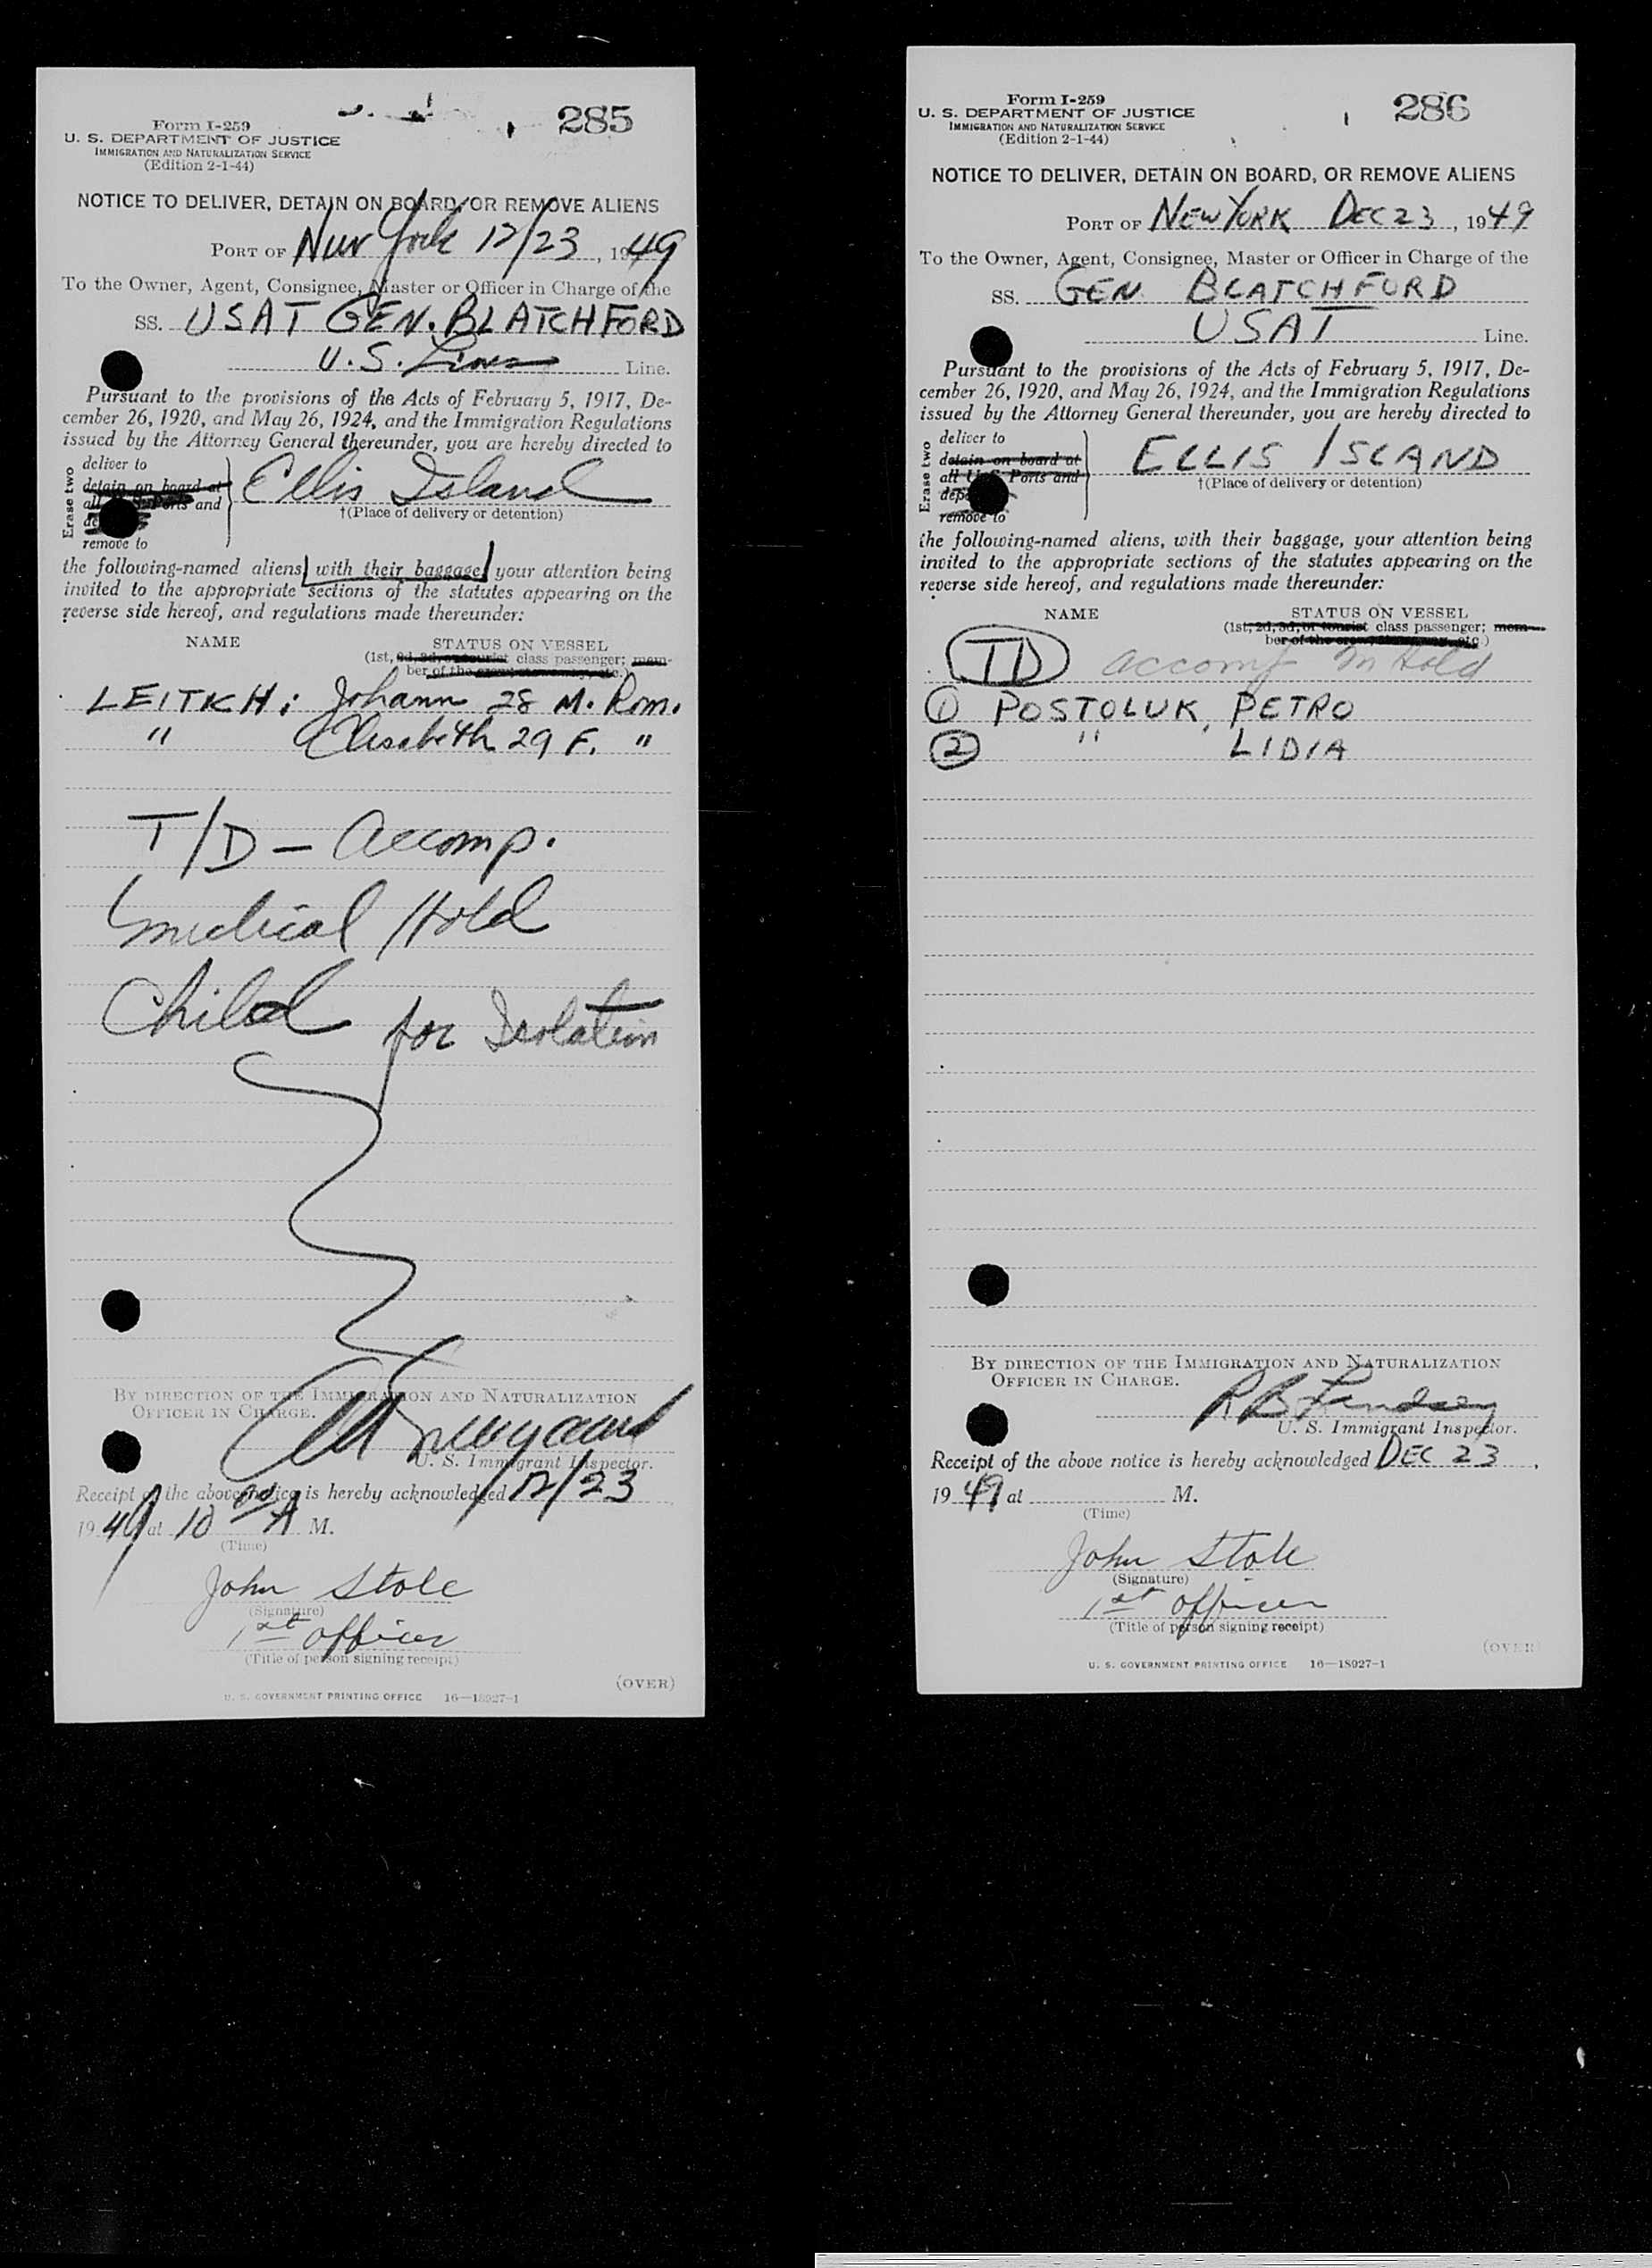 285
Form I-259
U. S. DEPARTMENT OF JUSTICE
IMMIGRATION AND NATURALIZATION SERVICE
(Edition 2-1-44)
NOTICE TO DELIVER, DETAIN ON BOARD, OR REMOVE ALIENS
PORT OF New York 12/23, 1949
To the Owner, Agent, Consignee, Master or Officer in Charge of the
SS. USAT GEN. BLATCHFORD
U.S. Lines Line.
Pursuant to the provisions of the Acts of February 5, 1917, De-
cember 26, 1920, and May 26, 1924, and the Immigration Regulations
issued by the Attorney General thereunder, you are hereby directed to
Erase two
deliver to
detain on board at
all Ports and
remove to
Ellis Island
†(Place of delivery or detention)
the following-named aliens, with their baggage, your attention being
invited to the appropriate sections of the statutes appearing on the
reverse side hereof, and regulations made thereunder:
NAME STATUS ON VESSEL
(1st, 2d, 3d, or tourist class passenger; mem-
ber of the etc.)
LEITKH: Johann 28 M. Rom.
" Elisabeth 29 F. "
T/D - Accomp.
Medical Hold
Child for Isolation
BY DIRECTION OF THE IMMIGRATION AND NATURALIZATION
OFFICER IN CHARGE.
U. S. Immigrant Inspector.
Receipt of the above notice is hereby acknowledged 12/23
1949 at 10 A M.
(Time)
John Stole
(Signature)
1st officer
(Title of person signing receipt)
(OVER)
U. S. GOVERNMENT PRINTING OFFICE 16—18927-1
286
Form I-259
U. S. DEPARTMENT OF JUSTICE
IMMIGRATION AND NATURALIZATION SERVICE
(Edition 2-1-44)
NOTICE TO DELIVER, DETAIN ON BOARD, OR REMOVE ALIENS
PORT OF NEW YORK DEC 23, 1949
To the Owner, Agent, Consignee, Master or Officer in Charge of the
SS. GEN BLATCHFORD
USAT Line.
Pursuant to the provisions of the Acts of February 5, 1917, De-
cember 26, 1920, and May 26, 1924, and the Immigration Regulations
issued by the Attorney General thereunder, you are hereby directed to
Erase two
deliver to
detain on board at
all U.S. Ports and
remove to
ELLIS ISLAND
†(Place of delivery or detention)
the following-named aliens, with their baggage, your attention being
invited to the appropriate sections of the statutes appearing on the
reverse side hereof, and regulations made thereunder:
NAME STATUS ON VESSEL
(1st, 2d, 3d, or tourist class passenger; mem-
ber of the crew, etc.)
TD accomp M Hold
1 POSTOLUK, PETRO
2 " LIDIA
BY DIRECTION OF THE IMMIGRATION AND NATURALIZATION
OFFICER IN CHARGE.
R B Lindsey
U. S. Immigrant Inspector.
Receipt of the above notice is hereby acknowledged DEC 23,
1949 at M.
(Time)
John Stole
(Signature)
1st officer
(Title of person signing receipt)
(OVER)
U. S. GOVERNMENT PRINTING OFFICE 16—18927-1